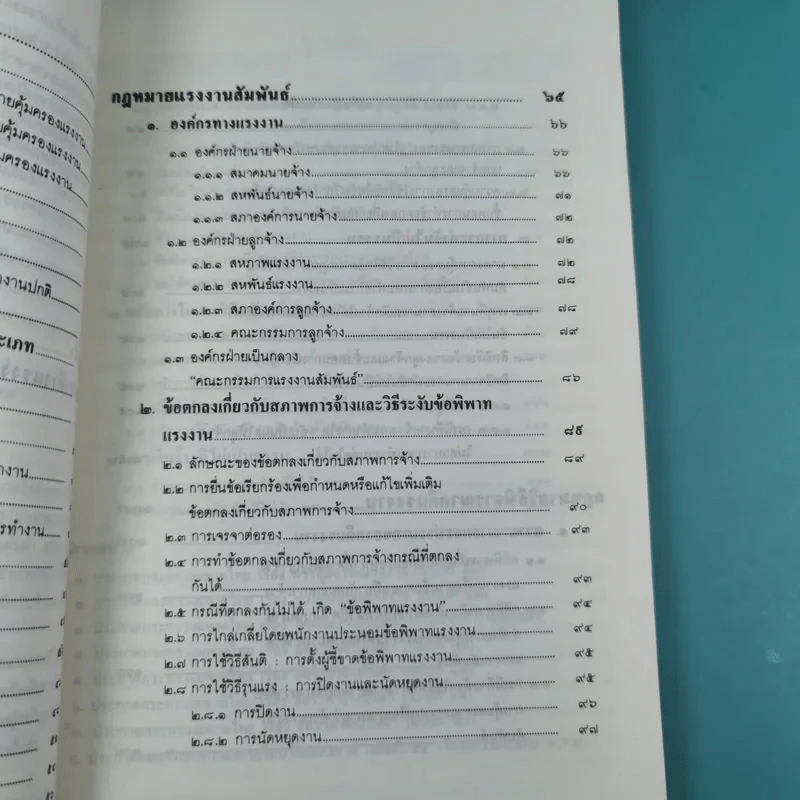 ายคุ้มครองแรงงาน
คุ้มครองแรงงาน
มครองแรงงาน
างานปกติ
ะเภท
างาน
รทำงาน
กฎหมายแรงงานสัมพันธ์ ๖๕
๑. องค์กรทางแรงงาน ๖๖
๑.๑ องค์กรฝ่ายนายจ้าง ๖๖
๑.๑.๑ สมาคมนายจ้าง ๖๖
๑.๑.๒ สหพันธ์นายจ้าง ๗๑
๑.๑.๓ สภาองค์การนายจ้าง ๗๒
๑.๒ องค์กรฝ่ายลูกจ้าง ๗๒
๑.๒.๑ สหภาพแรงงาน ๗๒
๑.๒.๒ สหพันธ์แรงงาน ๗๘
๑.๒.๓ สภาองค์การลูกจ้าง ๗๘
๑.๒.๔ คณะกรรมการลูกจ้าง ๗๙
๑.๓ องค์กรฝ่ายเป็นกลาง
“คณะกรรมการแรงงานสัมพันธ์” ๘๖
๒. ข้อตกลงเกี่ยวกับสภาพการจ้างและวิธีระงับข้อพิพาท
แรงงาน ๘๙
๒.๑ ลักษณะของข้อตกลงเกี่ยวกับสภาพการจ้าง ๘๙
๒.๒ การยื่นข้อเรียกร้องเพื่อกำหนดหรือแก้ไขเพิ่มเติม
ข้อตกลงเกี่ยวกับสภาพการจ้าง ๙๐
๒.๓ การเจรจาต่อรอง ๙๓
๒.๔ การทำข้อตกลงเกี่ยวกับสภาพการจ้างกรณีที่ตกลง
กันได้ ๙๓
๒.๕ กรณีที่ตกลงกันไม่ได้ เกิด “ข้อพิพาทแรงงาน” ๙๔
๒.๖ การไกล่เกลี่ยโดยพนักงานประนอมข้อพิพาทแรงงาน ๙๔
๒.๗ การใช้วิธีสันติ : การตั้งผู้ชี้ขาดข้อพิพาทแรงงาน ๙๕
๒.๘ การใช้วิธีรุนแรง : การปิดงานและนัดหยุดงาน ๙๕
๒.๘.๑ การปิดงาน ๙๖
๒.๘.๒ การนัดหยุดงาน ๙๗